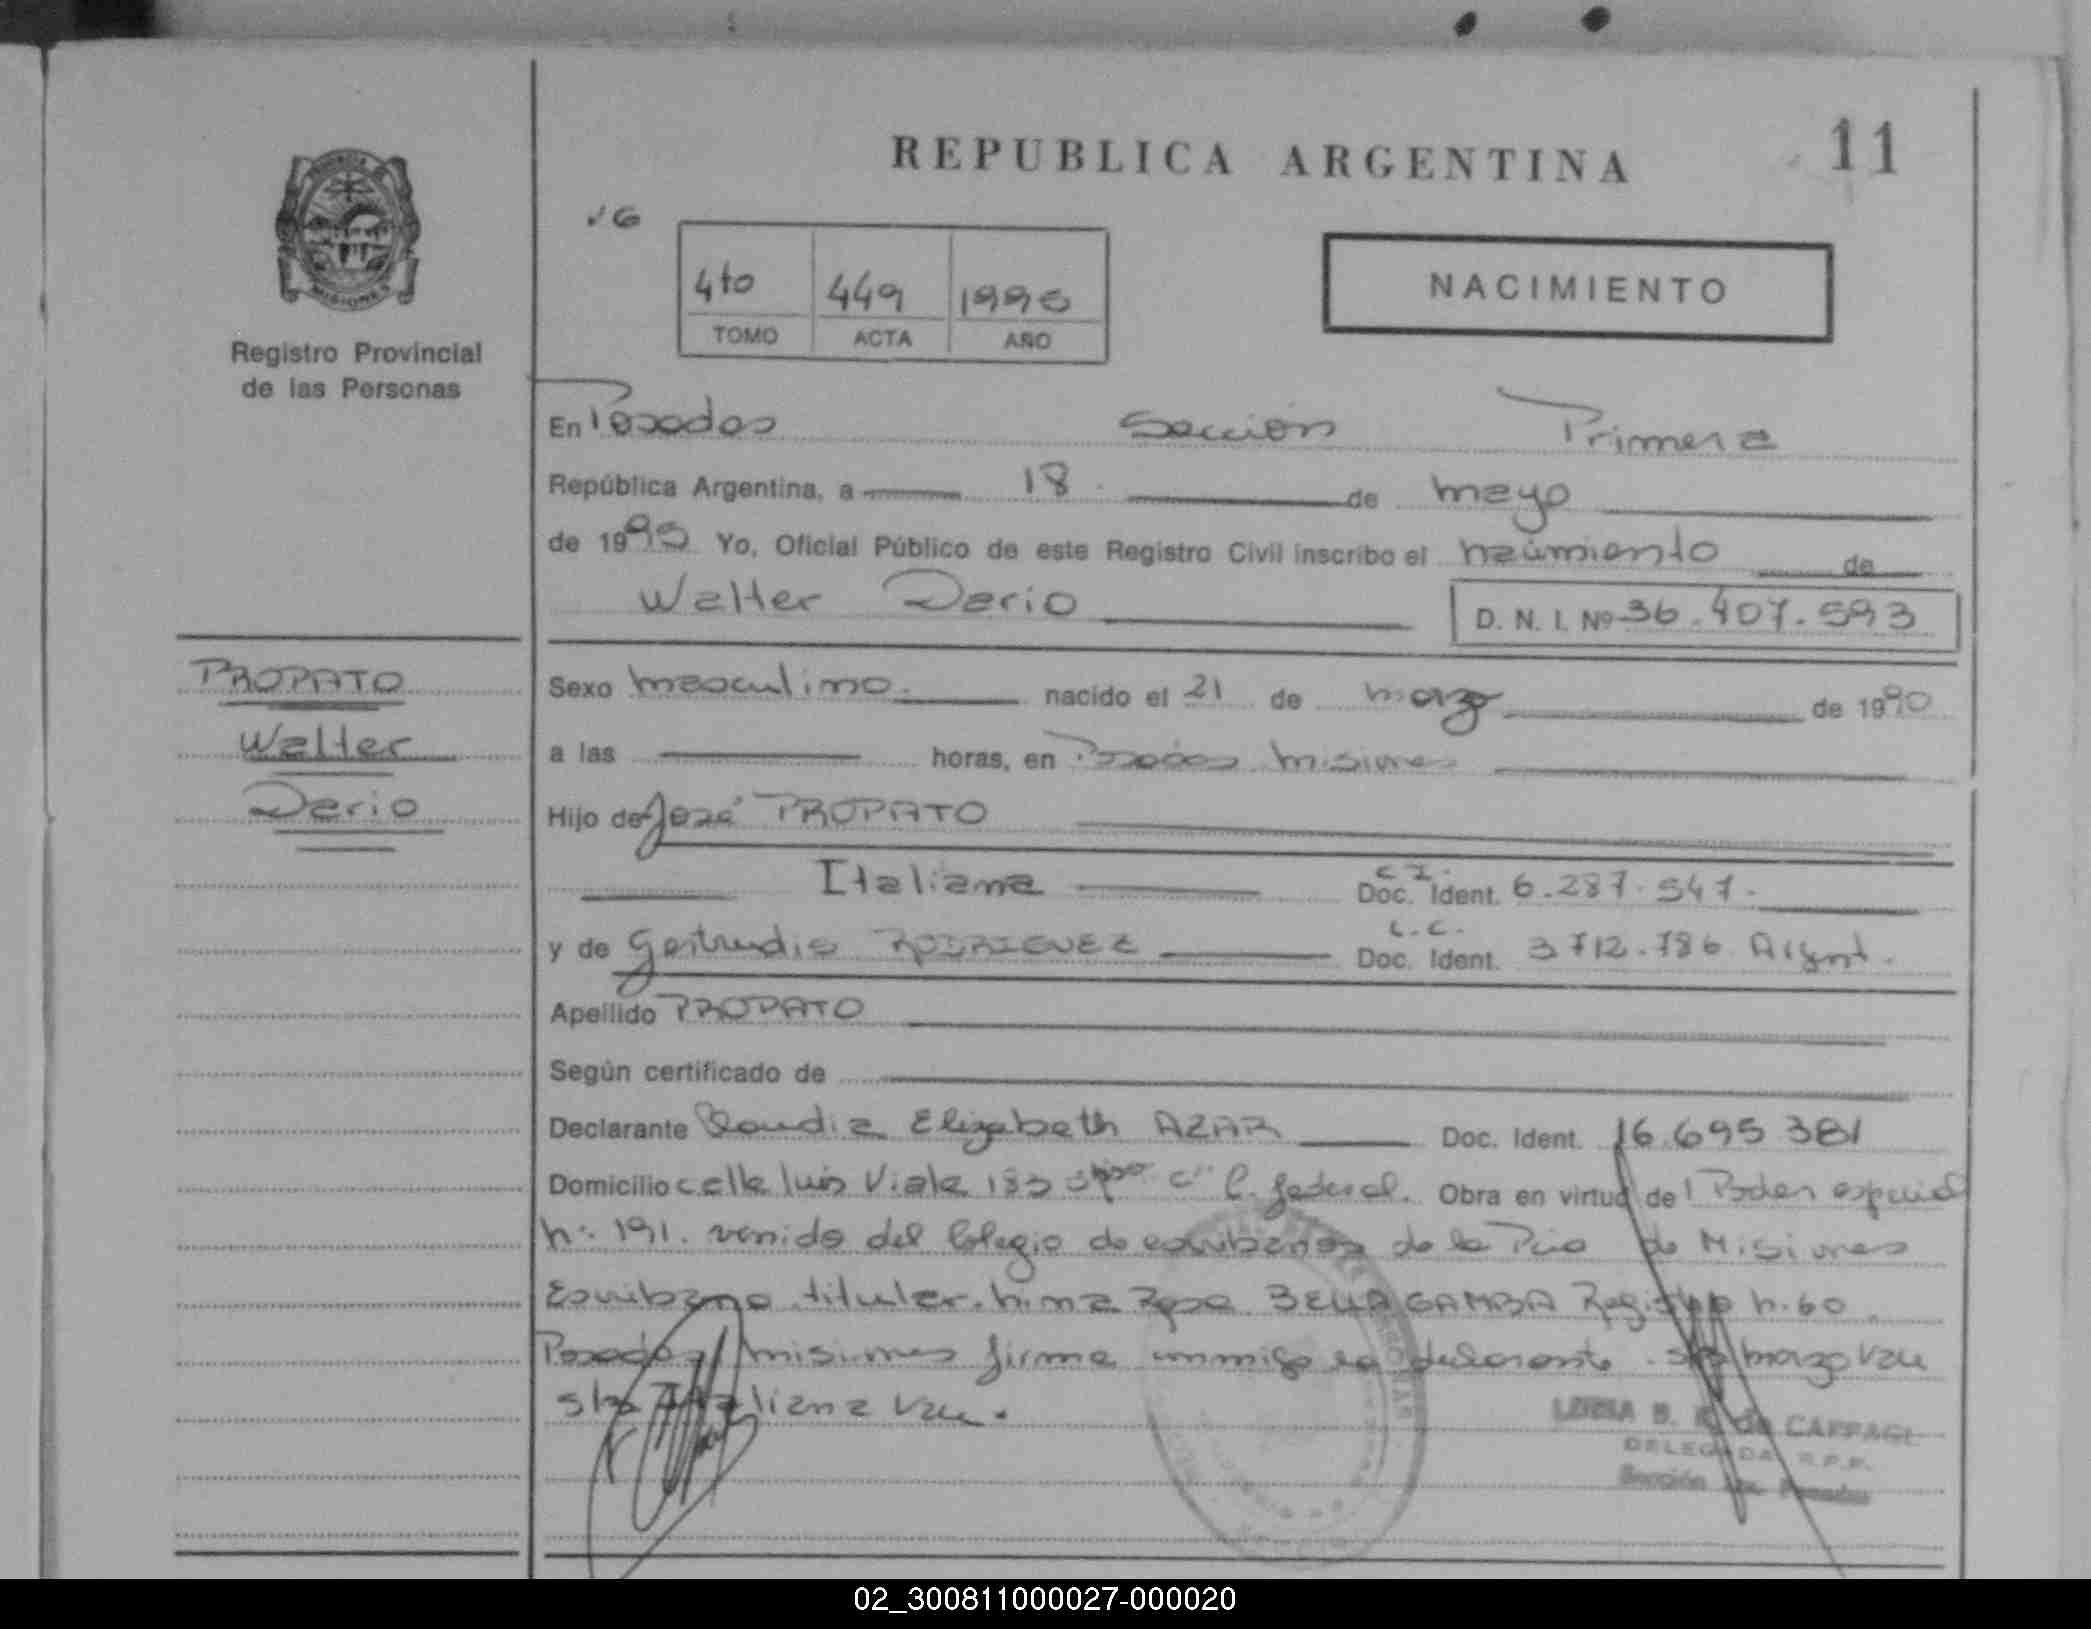 REPUBLICA ARGENTINA
11
NACIMIENTO
4to 449 1990
TOMO ACTA AÑO
MISIONES
Registro Provincial
de las Personas
En Posadas Sección Primera
República Argentina, a 18 de mayo
de 1990 Yo, Oficial Público de este Registro Civil inscribo el nacimiento de
Walter Dario
D. N. I. Nº 36.407.593
PROPATO
Walter
Dario
Sexo masculino. nacido el 21 de marzo de 1990
a las horas, en Posadas Misiones
Hijo de José PROPATO
Italiana C I. Doc. Ident. 6.287.547.
y de Gertrudis RODRIGUEZ L.C. Doc. Ident. 3 712.786 Argent.
Apellido PROPATO
Según certificado de
Declarante Claudia Elizabeth AZAR Doc. Ident. 16.695 381
Domicilio calle Luis Viale 183 C. federal. Obra en virtud de Poder especial
n: 191. venido del Colegio de escribanos de la Pcia de Misiones
Escribano titular. Rosa BELLAGAMBA Registro n. 60
Posadas misiones firma conmigo la declarante. s/b marzo Vale
s/b Italiana Vale.
DELEGADA R.P.P.
Sección 1ra. Posadas
02_300811000027-000020